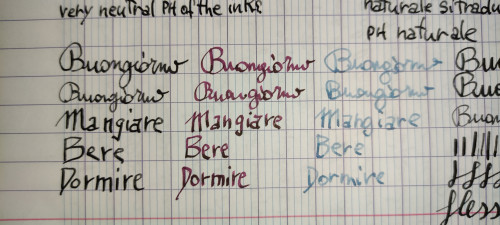 very neutral pH of the inks
naturale si tradu
pH naturale
Buongiorno Buongiorno Buongiorno Buo
Buongiorno Buongiorno Buongiorno Buo
Mangiare Mangiare Mangiare Buon
Bere Bere Bere
Dormire Dormire Dormire
fless